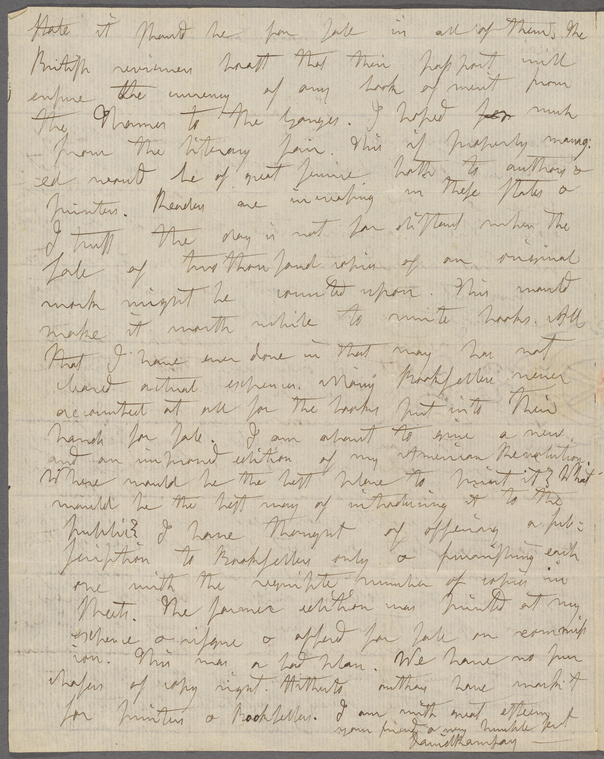 State it should be for sale in all of them. The
British reviewers boast that their passport will
ensure the currency of any book of merit from
the Thames to the Ganges. I hoped for much
from the literary fair. This if properly manag-
ed would be of great service both to authors &
printers. Readers are increasing in these States &
I trust the day is not far distant when the
sale of two thousand copies of an original
work might be counted upon. This would
make it worth while to write books. All
that I have ever done in that way has not
cleared actual expences. Many Booksellers never
accounted at all for the books put into their
hands for sale. I am about to give a new
and an improved edition of my American Revolution.
Where would be the best place to print it? What
would be the best way of introducing it to the
public? I have thought of offering a sub-
scription to Booksellers only & furnishing each
one with the requisite number of copies in
sheets. The former edition was printed at my
expence & risque & offered for sale on commiss
ion. This was a bad plan. We have no pur
chasers of copy right. Hitherto authors have workt
for printers & Booksellers. I am with great esteem
your friend & very humble servt
David Ramsay